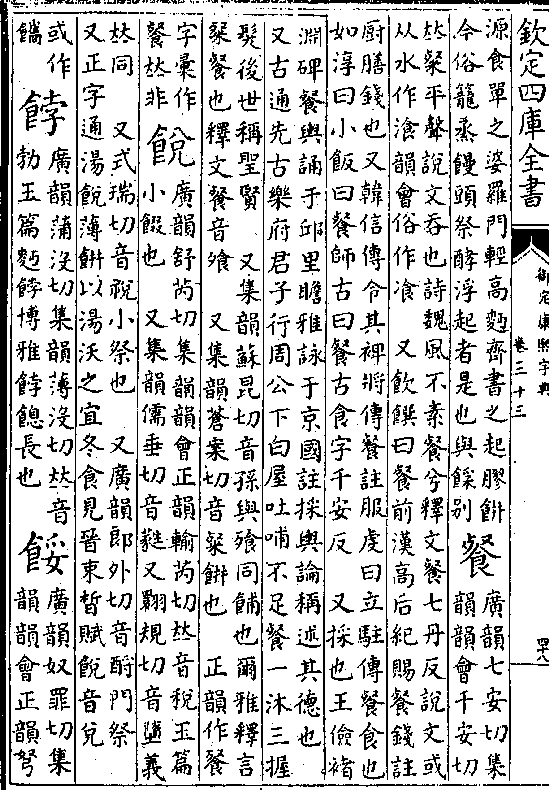 欽定四庫全書
御定康熙字典
卷三十三
四十八
源食單之婆羅門輕高麪齊書之起膠餅
今俗籠蒸饅頭祭酵浮起者是也與餜别
餐
廣韻七安切集
韻韻會千安切
𠀤粲平聲說文吞也詩魏風不素餐兮釋文餐七丹反說文或
从水作湌韻會俗作飡 又飲饌曰餐前漢高后紀賜餐錢註
厨膳錢也又韓信傳令其裨將傳餐註服虔曰立駐傳餐食也
如淳曰小飯曰餐師古曰餐古食字千安反 又採也王儉褚
淵碑餐輿誦于邱里瞻雅詠于京國註採輿論稱述其德也
又古通先古樂府君子行周公下白屋吐哺不足餐一沐三握
髮後世稱聖賢 又集韻蘇昆切音孫與飱同餔也爾雅釋言
粲餐也釋文餐音飧 又集韻蒼案切音粲餅也 正韻作餐
字彙作
餐𠀤非
䬽
廣韻舒芮切集韻韻會正韻輸芮切𠀤音稅玉篇
小餟也 又集韻儒垂切音甤又翾規切音隳義
𠀤同 又式瑞切音祱小祭也 又廣韻郎外切音酹門祭
又正字通湯䬽薄餅以湯沃之宜冬食見晉束晳賦䬽音兌
或作
餑
廣韻蒲沒切集韻薄沒切𠀤音
勃玉篇麪餑博雅餑餭長也
餒
廣韻奴罪切集
韻韻會正韻弩